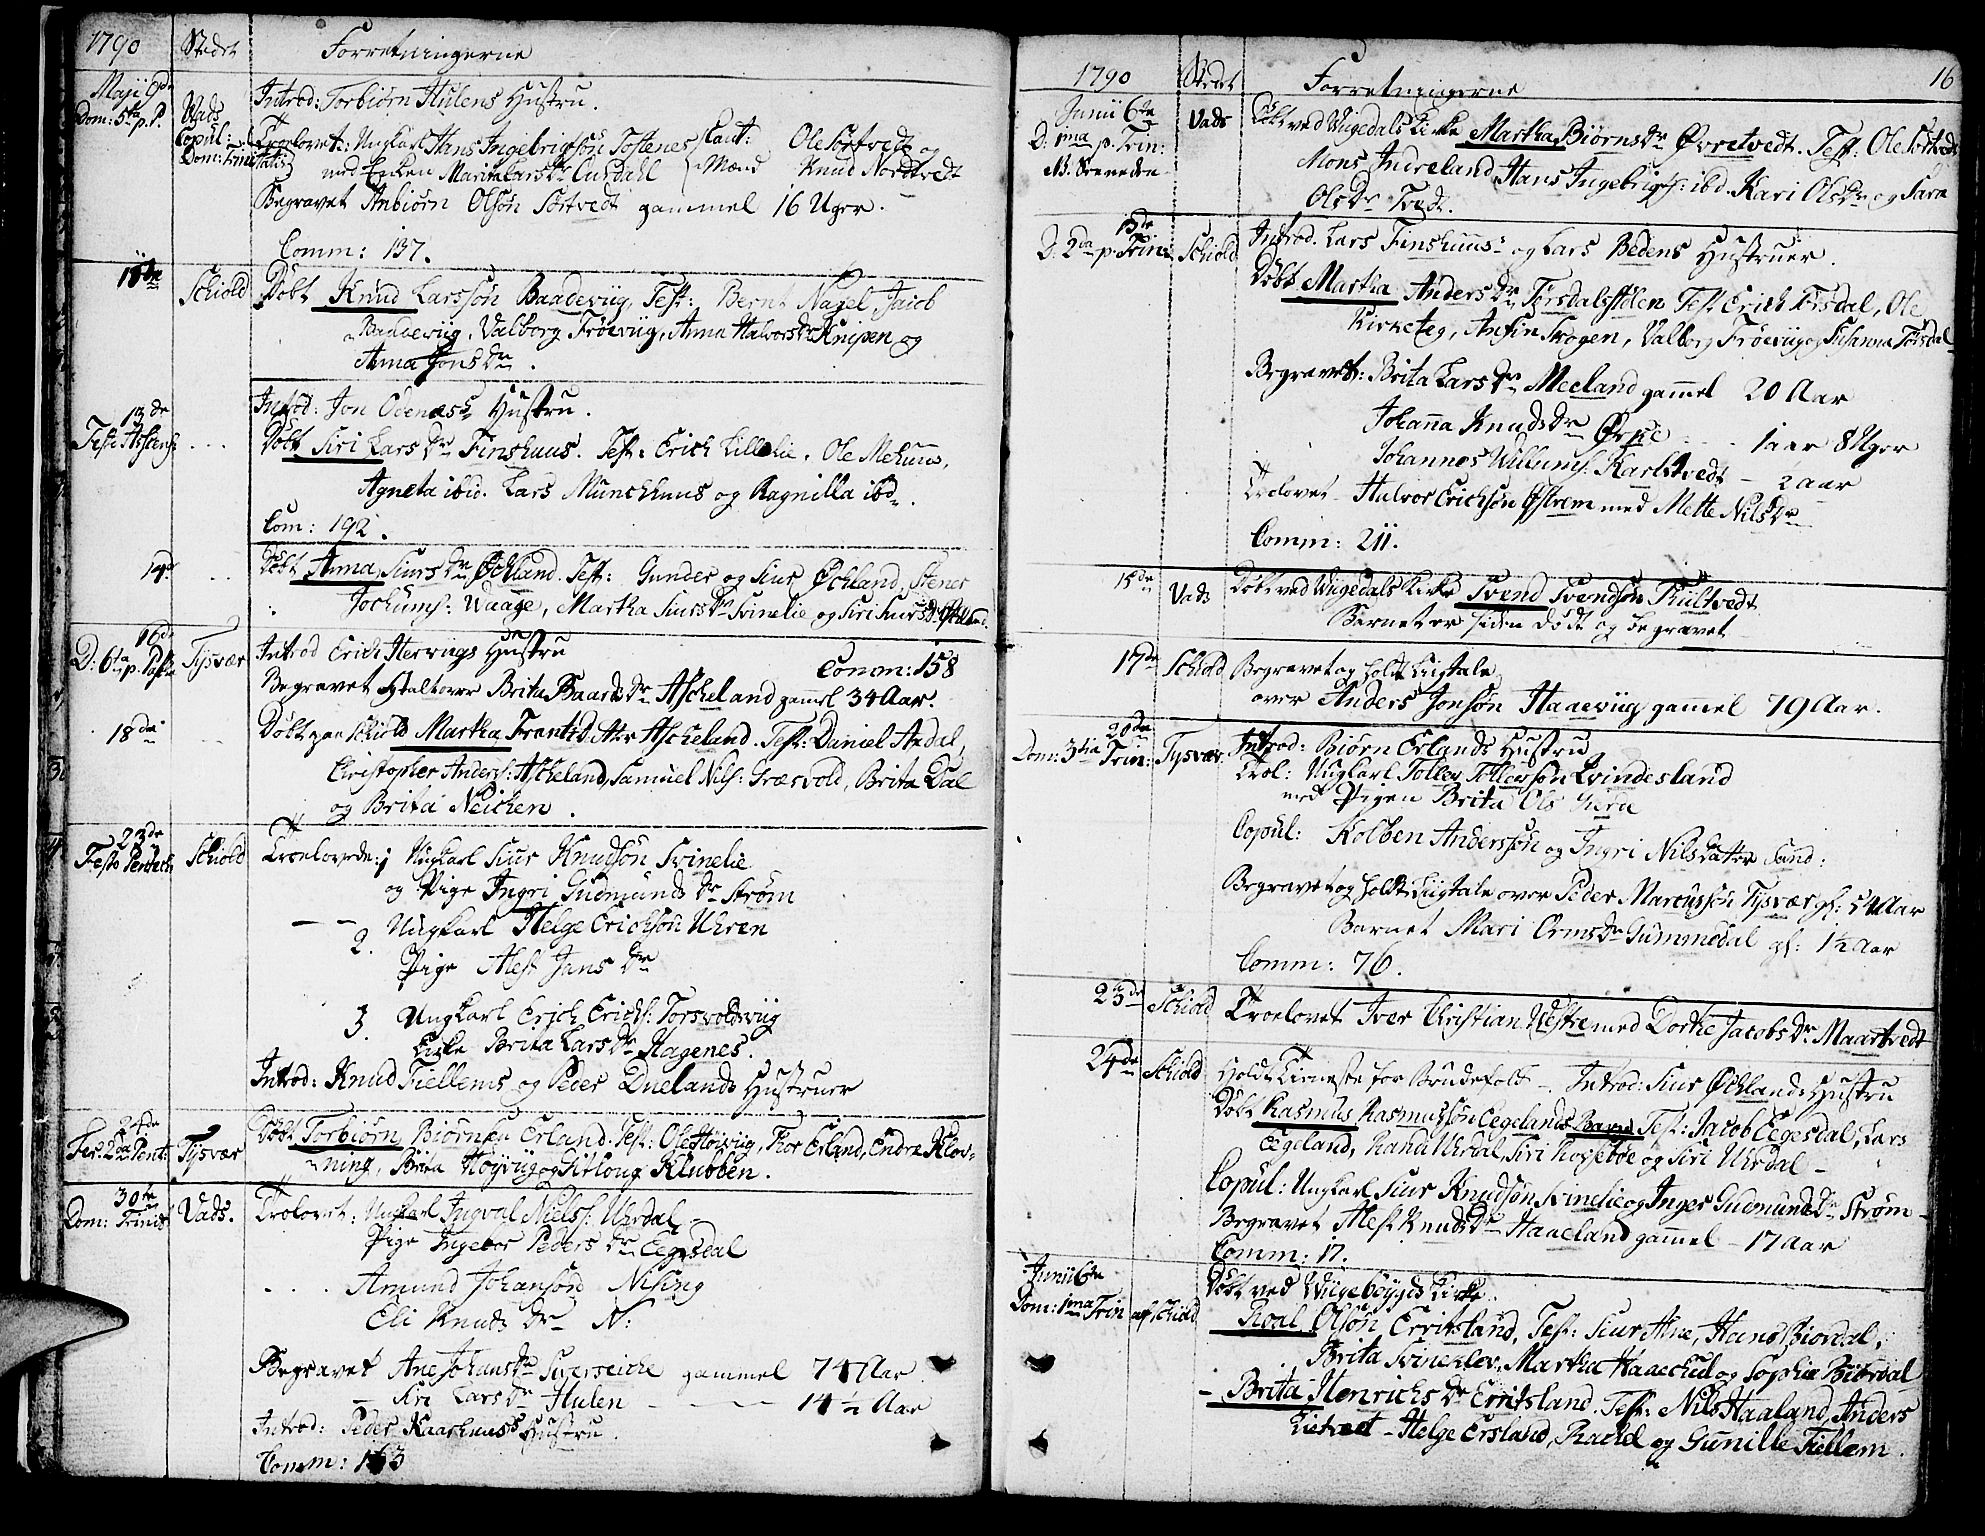 1790 Stedet Forretningerne
Maji 9de Introd: Torbiörn Hulens Hustru.
Dom: 5ta p. P. Vads
Copul: Troelovet: Ungkarl Hans Ingebrigtsön Tostenes Caut: Ole Sörtvedt og
Dom: Trinitatis med Enken Marita Lars Dr Lursdahl Mænd Knud Nordtvedt
Begravet Anbiörn Olsön Sörtvedt gammel 16 Uger.
Comm: 137.
Schiold Döbt Knud Larssön Baadeviig, Test: Bernt Nagel, Jacob
Baadeviig, Valborg Fröeviig, Anna Halvors Dr Knipen og
Anna Jons Dr.
13de Introd: Jon Odenæs Hustru.
Döbt Siri Lars Dr Finshuus. Test: Erich Lillelie, Ole Mehuus,
Agneta ibid. Lars Munchhuus og Ragnilla ibd.
Com: 192.
14de Döbt Anna Siurs Dr Öchland. Test: Gunder og Siur Öchland, Stener
Jochums: Waage, Martha Siurs Dr Svinelie og Siri Siurs Dr Öchland.
16de
D: 6ta p. Pasch Tysvær Introd Erich Hervigs Hustru Comm: 158
Begravet Brita Baards Dr Ascheland gamel 34 Aar.
18de Döbt paa Schiold Martha Frants Datter Ascheland. Test: Daniel Aadal,
Christopher Anders: Ascheland, Samuel Nils: Græsvold, Brita Dal
og Brita Neichen.
23de
Festo Pentech Schiold Troelovede: 1 Ungkarl Siur Knudsön Svinelie
og Pige Ingri Gudmunds Dr Ström
2. Ungkarl Helge Erichsön Uhren
Pige Alest Jans Dr
3. Ungkarl Erich Erichs: Torsvoldsviig
Enke Brita Lars Dr Hagenes.
Introd: Knud Tiellems og Peder Duelands Hustruer
24de
Fer: 2da Pent: Tysvær Döbt Torbiörn Biörnsen Erland. Test: Ole Höiviig, Thor Erland, Endre Klov-
ning, Brita Höyviig og Klubben.
30te
Dom: Trinit Vads. Trolovet: Ungkarl Ingval Niels: Uhrdal
Pige Ingebor Peders Dr Eegesdal
Amund Johansön Nising
Eli Knuds Dr N:
Begravet Ane Johans Dr Sverseiche gammel 74 Aar
Siri Lars Dr Hulen 14½ Aar
Introd: Peder Kaarhuuss Hustru.
Comm: 163
1790 Stedet Forretningerne 16
Junii 6te
D. 1ma p. Trin: Vads Döbt ved Wigedals Kirke Martha Biörns Dr Övretvedt. Test: Ole Sörtvedt
Mons Indreland, Hans Ingebrigts: ibd. Kari Ols Dr og Sara
Ols Dr Tvedt.
13de
D. 2da p. Trin: Schiold Introd. Lars Finshuus: og Lars Bedens Hustruer.
Döbt Martha Anders Dr Törsdalsstölen Test Erich Törsdal, Ole
Kirketeg, Anfin Skogen, Valborg Fröeviig og Susanna Törsdal
Begravet: Brita Lars Dr Meeland gammel 20 Aar
Johanna Knuds Dr Örke 1 aar 8 Uger
Johannes Willums: Karltvedt ½ aar
Trolovet Halvor Erichsön Östrem med Mette Nils Dr
Comm: 211.
15de Vads Döbt ved Wiigedals Kirke Svend Svendsön Fultvedt
Barnet er siden död og begravet
17de Schiold Begravet og holdt Liigtale
over Anders Jonsön Haaeviig gammel 79 Aar.
20de
Dom: 3tia Trin: Tysvær Introd: Biörn Erlands Hustru
Trol: Ungkarl Tollev Tollevsön Qvindesland
med Pigen Brita Ols
Copul: Kolben Anderssön og Ingri Nilsdatter Sand:
Begravet og holdt Liigtale over Peder Marcussön Tysvær gl: 54 Aar
Barnet Mari Orms Dr Gummedal gl: 1½ Aar
Comm: 76.
23de Schiold Troelovet Iver Christian Nestre med Dorthe Jacobs Dr Maartvedt
24de Schiold Holdt Tieneste for Brudefolk. Introd: Siur Öchlands Hustru
Döbt Rasmus Rasmussön Eegelands Barn Test: Jacob Eegesdal, Lars
Eegeland, Rand Uhrdal, Siri Rosseböe og Siri Uhrdal
Copul: Ungkarl Siur Knudsön Svinelie og Inger Gudmunds Dr Ström
Begravet Alest Knuds Dr Haaeland gammel 17 Aar
Comm: 17.
Junii 6te Döbt ved Wiigebøygds Kirke
Dom: 1ma Trin af Schiold Roal Olsön Erritsland, Test: Siur Alne, Hans Biordal,
Brita Svineklev, Martha Haaeland og Sophia Biordal
Brita Henrichs Dr Erritsland. Test: Nils Haaland, Anders
Lietvedt, Helge Ersland, Rachel og Gunille Tiellem.